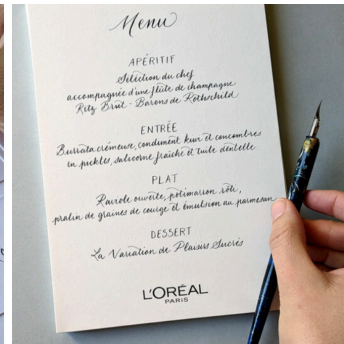 Menu
APÉRITIF
Sélection du chef
accompagnée d'une flûte de champagne
Ritz Brut - Barons de Rothschild
ENTRÉE
Burrata crémeuse, condiment kiwi et concombres
en pickles, salicorne fraîche et tuile dentelle
PLAT
Raviole ouverte, potimarron rôti,
pralin de graines de courge et émulsion au parmesan
DESSERT
La Variation de Plaisirs Sucrés
L'ORÉAL
PARIS